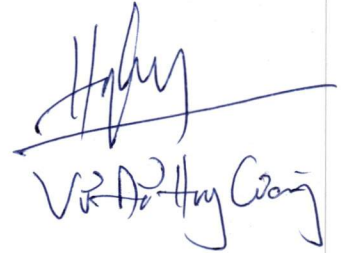 Vũ Đỗ Huy Cường